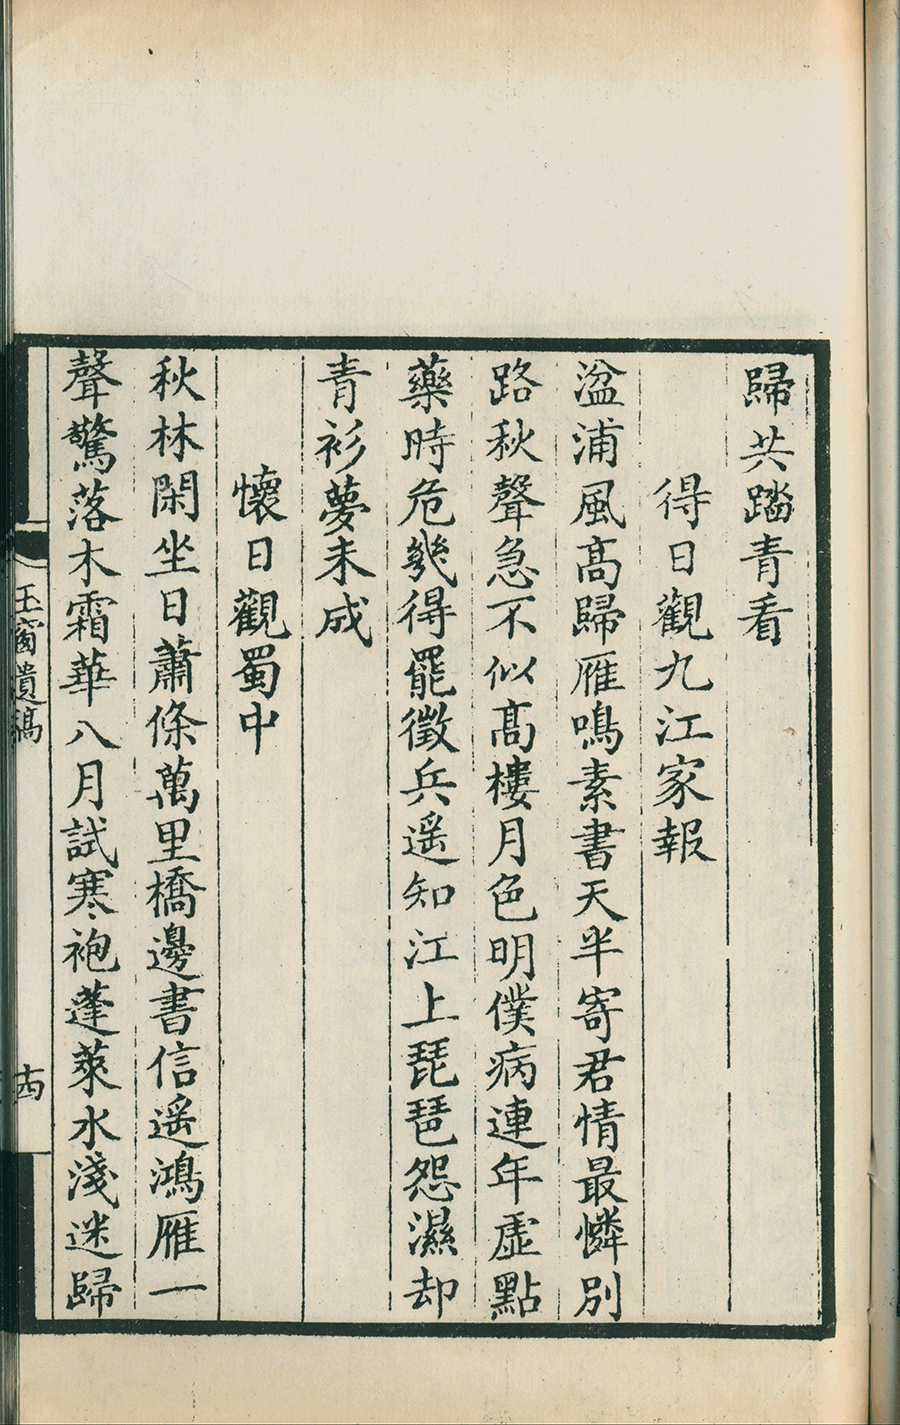 歸共踏青看
得日觀九江家報
湓浦風髙歸雁鳴素書天半寄君情最憐別
路秋聲急不似髙樓月色明僕病連年虛點
藥時危幾得罷徵兵遥知江上琵琶怨濕却
青衫夢未成
懷日觀蜀中
秋林閑坐日蕭條萬里橋邊書信遥鴻雁一
聲驚落木霜華八月試寒袍蓬萊水淺迷歸
玉窗遺稿
十四